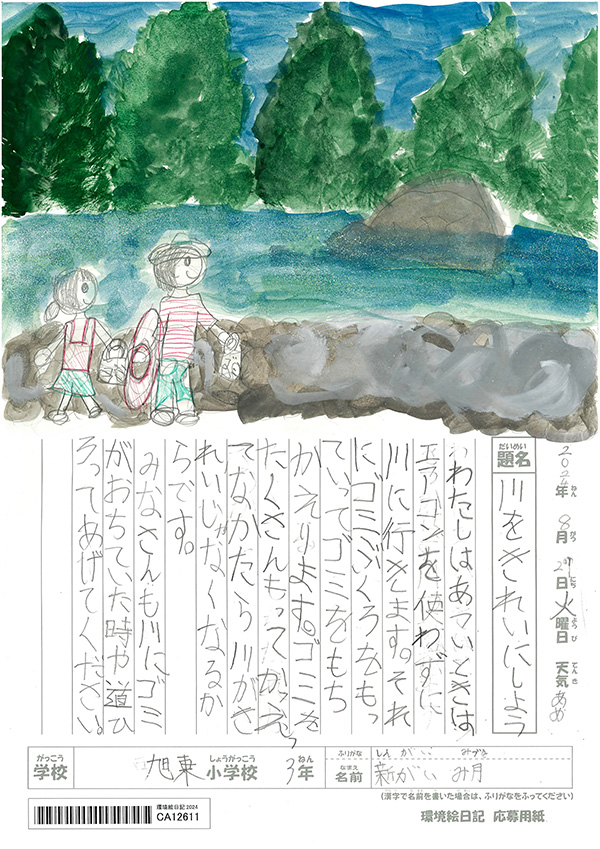 2024年ねん 8月がつ 日にち 火曜日ようび 天気てんき あめ
題名だいめい 川をきれいにしよう
わたしはあついときは
エアコンを使わずに
川に行きます。それ
に、ゴミぶくろをもっ
ていってゴミをもち
かえります。ゴミを
たくさんもってかえっ
てなかたら川がき
れいじゃなくなるか
らです。
みなさんも川にゴミ
がおちていた時や道ひ
ろってあげてください。
学校がっこう 旭東 小学校しょうがっこう 3年ねん
ふりがな しん がい みづき
名前なまえ 新がい み月
(漢字で名前を書いた場合は、ふりがなをふってください)
環境絵日記 応募用紙
環境絵日記2024
CA12611